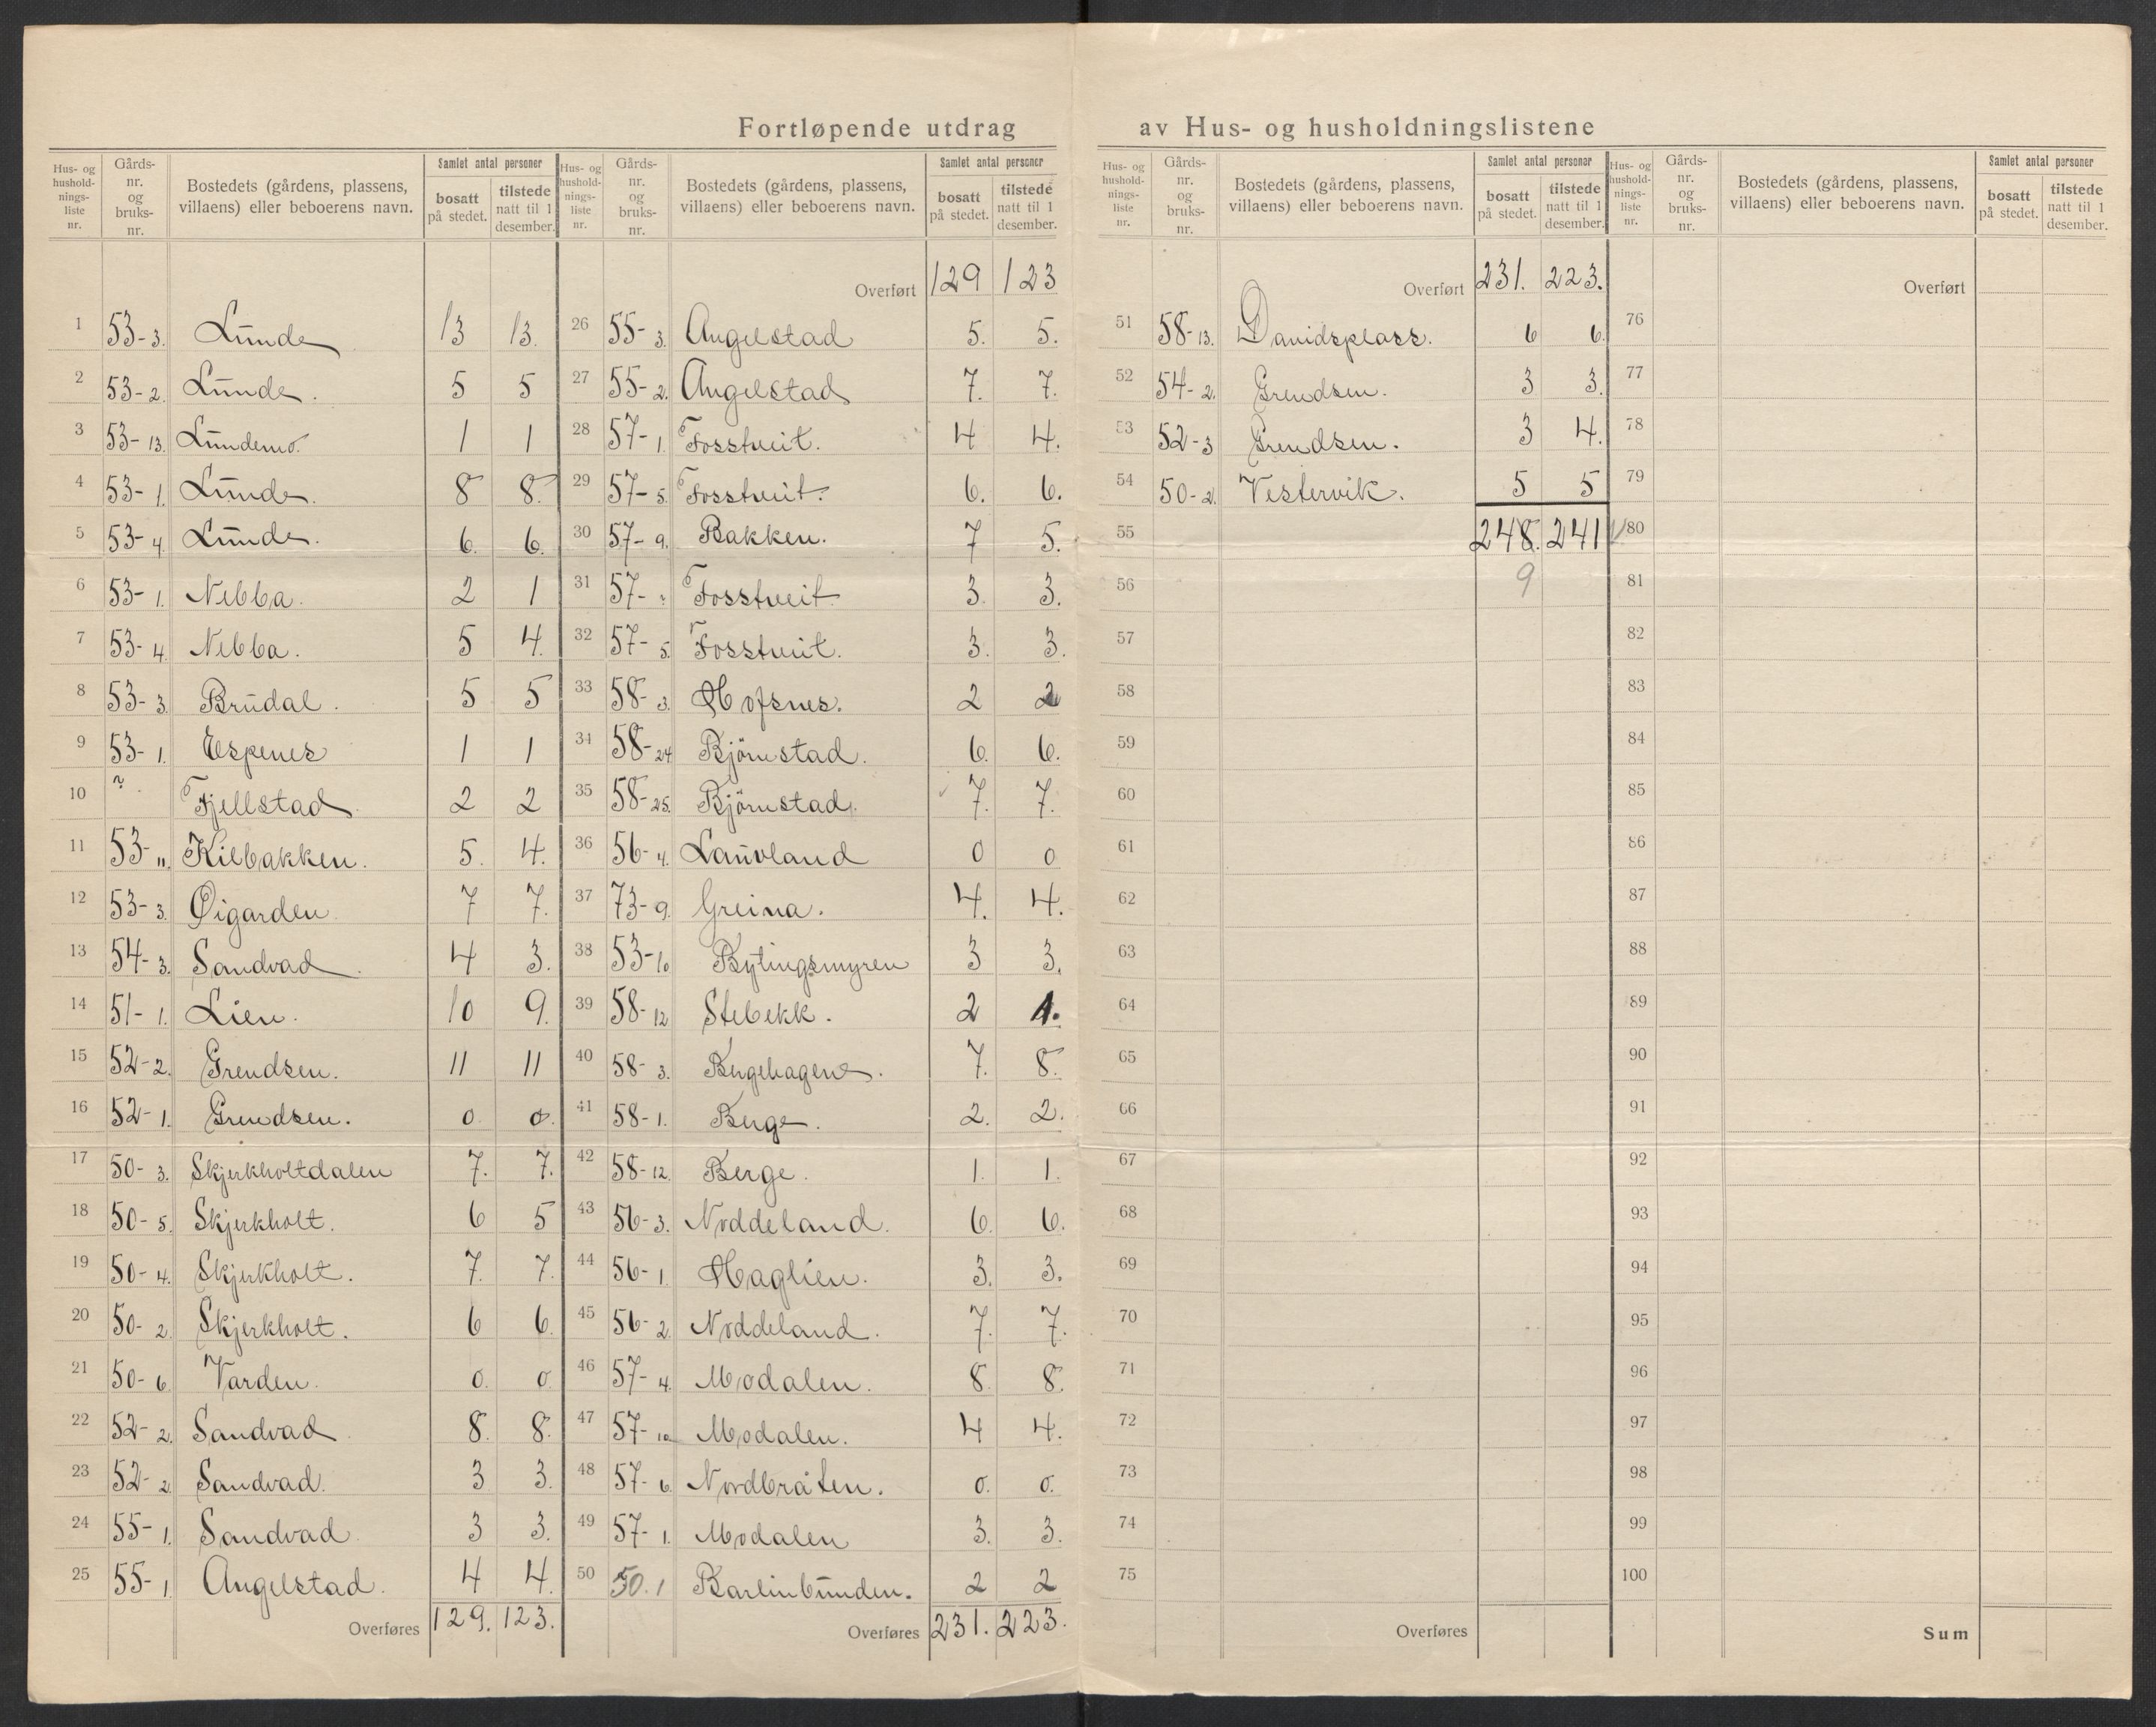 Fortløpende utdrag av Hus- og husholdningslistene
Hus- og hushold-nings-liste nr. | Gårds-nr. og bruks-nr. | Bostedets (gårdens, plassens, villaens) eller beboerens navn. | Samlet antal personer | bosatt på stedet. | tilstede natt til 1 desember.
1 53-3. Lunde 13 13.
2 53-2. Lunde. 5 5
3 53-13. Lundemo. 1 1
4 53-1. Lunde. 8 8.
5 53-4. Lunde. 6. 6.
6 53-1. Nebba. 2 1
7 53-4. Nebba. 5 4.
8 53-3. Brudal. 5 5
9 53-1. Espenes 1 1
10 ? Fjellstad 2 2
11 53-11. Kilbakken. 5. 4.
12 53-3. Øigarden. 7 7.
13 54-3. Sandvad. 4 3.
14 51-1. Lien. 10 9.
15 52-2. Grendsen. 11 11
16 52-1. Grendsen. 0. 0.
17 50-3. Skjerkholtdalen 7. 7.
18 50-5. Skjerkholt. 6 5
19 50-4. Skjerkholt. 7. 7.
20 50-2. Skjerkholt. 6 6.
21 50-6. Varden. 0. 0.
22 52-2. Sandvad. 8. 8.
23 52-2. Sandvad. 3 3.
24 55-1. Sandvad 3 3.
25 55-1. Angelstad. 4 4.
Overføres 129. 123.
Hus- og hushold-nings-liste nr. | Gårds-nr. og bruks-nr. | Bostedets (gårdens, plassens, villaens) eller beboerens navn. | Samlet antal personer | bosatt på stedet. | tilstede natt til 1 desember.
Overført 129 123
26 55-3. Angelstad 5. 5.
27 55-2. Angelstad 7. 7.
28 57-1. Fosstveit. 4 4.
29 57-5. Fosstveit. 6. 6.
30 57-9. Bakken. 7 5.
31 57-? Fosstveit 3. 3.
32 57-5. Fosstveit. 3. 3.
33 58-3. Hofsnes. 2 2
34 58-24 Bjørnstad. 6. 6.
35 58-25. Bjørnstad. 7. 7.
36 56-4. Lauvland 0 0
37 73-9. Greina. 4. 4.
38 53-10 Bytingsmyren 3 3.
39 58-12 Stebekk. 2 1.
40 58-3. Bergehagen. 7. 8.
41 58-1. Berge. 2. 2.
42 58-12. Berge. 1. 1.
43 56-3. Noddeland. 6. 6.
44 56-1. Haglien. 3. 3.
45 56-2. Noddeland. 7. 7.
46 57-4. Modalen. 8. 8.
47 57-10 Modalen. 4 4.
48 57-6. Nordbråten. 0. 0.
49 57-1. Modalen 3. 3.
50 50.1 Barlinbunden. 2 2
Overføres 231. 223.
Hus- og hushold-nings-liste nr. | Gårds-nr. og bruks-nr. | Bostedets (gårdens, plassens, villaens) eller beboerens navn. | Samlet antal personer | bosatt på stedet. | tilstede natt til 1 desember.
Overført 231. 223.
51 58-13. Davidsplass. 6 6.
52 54-2. Grendsen. 3 3.
53 52-3 Grendsen. 3 4.
54 50-2. Vestervik. 5 5
55 248. 241
56 9
57
58
59
60
61
62
63
64
65
66
67
68
69
70
71
72
73
74
75
Overføres
Hus- og hushold-nings-liste nr. | Gårds-nr. og bruks-nr. | Bostedets (gårdens, plassens, villaens) eller beboerens navn. | Samlet antal personer | bosatt på stedet. | tilstede natt til 1 desember.
Overført
76
77
78
79
80
81
82
83
84
85
86
87
88
89
90
91
92
93
94
95
96
97
98
99
100
Sum